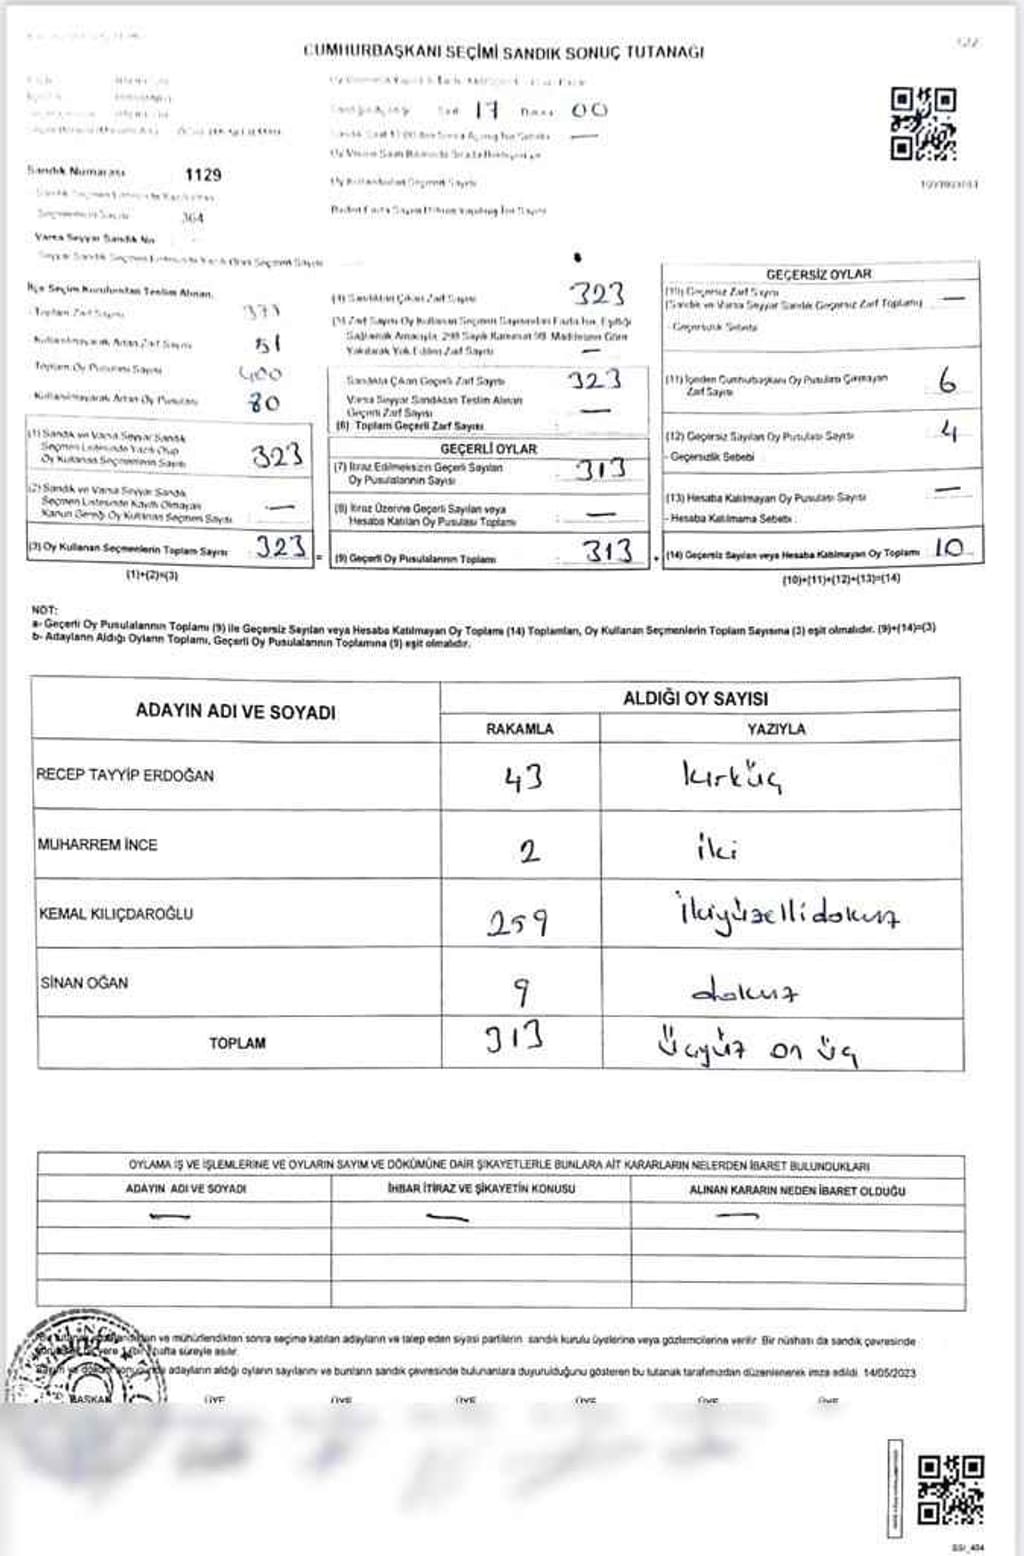 CUMHURBAŞKANI SEÇİMİ SANDIK SONUÇ TUTANAĞI
17 00
Sandık Numarası 1129
364
Varsa Seyyar Sandık No
İlçe Seçim Kurulundan Teslim Alınan,
- Toplam Zarf Sayısı 373
Kullanılmayarak Artan Zarf Sayısı 51
Toplam Oy Pusulası Sayısı 400
Kullanılmayarak Artan Oy Pusulası 80
(1) Sandık ve Varsa Seyyar Sandık
Seçmen Listesinde Yazılı Olup
Oy Kullanan Seçmenlerin Sayısı 323
(2) Sandık ve Varsa Seyyar Sandık
Seçmen Listesinde Kayıtlı Olmayan
Kanun Gereği Oy Kullanan Seçmen Sayısı —
(3) Oy Kullanan Seçmenlerin Toplam Sayısı 323 =
(1)+(2)=(3)
(4) Sandıktan Çıkan Zarf Sayısı 323
(5) Zarf Sayısı Oy Kullanan Seçmen Sayısından Fazla İse, Eşitliği
Sağlamak Amacıyla, 298 Sayılı Kanunun 98. Maddesine Göre
Yakılarak Yok Edilen Zarf Sayısı —
Sandıkta Çıkan Geçerli Zarf Sayısı 323
Varsa Seyyar Sandıktan Teslim Alınan
Geçerli Zarf Sayısı —
(6) Toplam Geçerli Zarf Sayısı
GEÇERLİ OYLAR
(7) İtiraz Edilmeksizin Geçerli Sayılan
Oy Pusulalarının Sayısı 313
(8) İtiraz Üzerine Geçerli Sayılan veya
Hesaba Katılan Oy Pusulası Toplamı —
(9) Geçerli Oy Pusulalarının Toplamı 313 +
GEÇERSİZ OYLAR
(10) Geçersiz Zarf Sayısı
(Sandık ve Varsa Seyyar Sandık Geçersiz Zarf Toplamı) —
- Geçersizlik Sebebi
(11) İçinden Cumhurbaşkanı Oy Pusulası Çıkmayan
Zarf Sayısı 6
(12) Geçersiz Sayılan Oy Pusulası Sayısı 4
- Geçersizlik Sebebi
(13) Hesaba Katılmayan Oy Pusulası Sayısı —
- Hesaba Katılmama Sebebi :
(14) Geçersiz Sayılan veya Hesaba Katılmayan Oy Toplamı 10
(10)+(11)+(12)+(13)=(14)
NOT:
a- Geçerli Oy Pusulalarının Toplamı (9) ile Geçersiz Sayılan veya Hesaba Katılmayan Oy Toplamı (14) Toplamları, Oy Kullanan Seçmenlerin Toplam Sayısına (3) eşit olmalıdır. (9)+(14)=(3)
b- Adayların Aldığı Oyların Toplamı, Geçerli Oy Pusulalarının Toplamına (9) eşit olmalıdır.
ADAYIN ADI VE SOYADI ALDIĞI OY SAYISI
RAKAMLA YAZIYLA
RECEP TAYYİP ERDOĞAN 43 kırküç
MUHARREM İNCE 2 iki
KEMAL KILIÇDAROĞLU 259 ikiyüzellidokuz
SİNAN OĞAN 9 dokuz
TOPLAM 313 üçyüz on üç
OYLAMA İŞ VE İŞLEMLERİNE VE OYLARIN SAYIM VE DÖKÜMÜNE DAİR ŞİKAYETLERLE BUNLARA AİT KARARLARIN NELERDEN İBARET BULUNDUKLARI
ADAYIN ADI VE SOYADI İHBAR İTİRAZ VE ŞİKAYETİN KONUSU ALINAN KARARIN NEDEN İBARET OLDUĞU
— — —
ve mühürlendikten sonra seçime katılan adayların ve talep eden siyasi partilerin sandık kurulu üyelerine veya gözlemcilerine verilir. Bir nüshası da sandık çevresinde
hafta süreyle asılır.
adayların aldığı oyların sayılarını ve bunların sandık çevresinde bulunanlara duyurulduğunu gösteren bu tutanak tarafımızdan düzenlenerek imza edildi. 14/05/2023
BAŞKAN ÜYE ÜYE ÜYE ÜYE ÜYE ÜYE